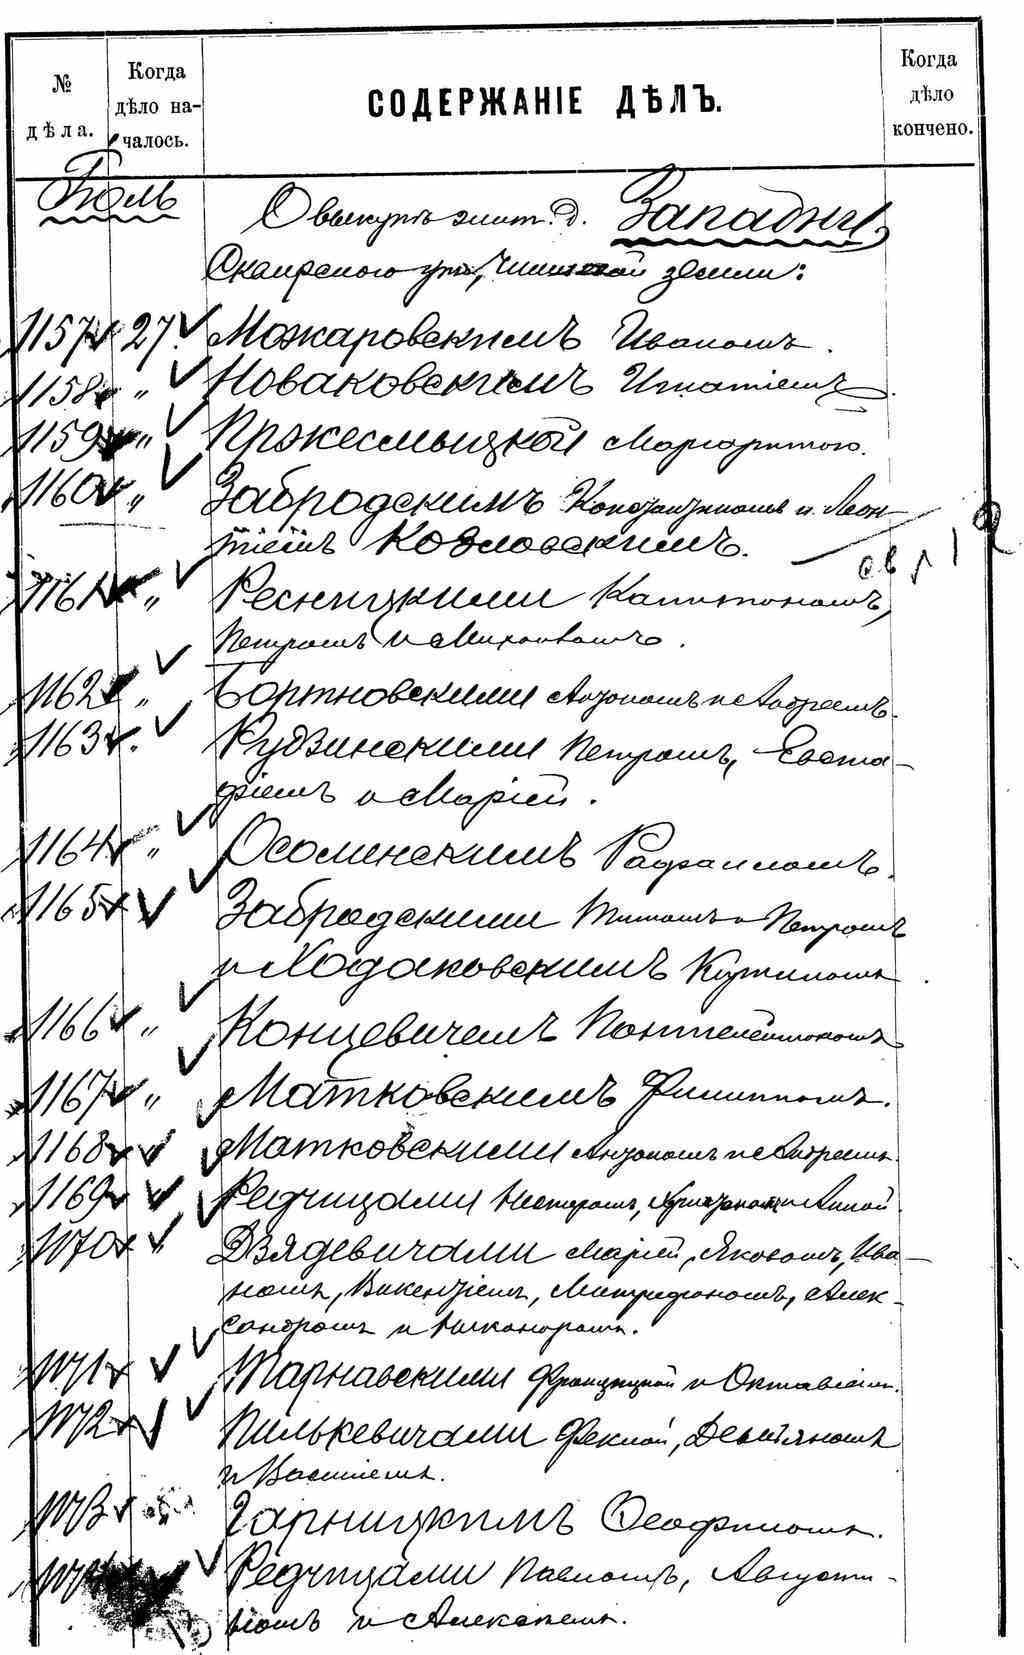 № дѣла.
Когда дѣло на-чалось.
СОДЕРЖАНІЕ ДѢЛЪ.
Когда дѣло кончено.
О выкупѣ жит. д. Западни,
Сквирского уѣз., чиншевой земли:
1157 27. Можаровскимъ Иваномъ.
1158 " Новаковскимъ Игнатіемъ.
1159 " Пржесмыцкой Маргаритою.
1160 " Забродскимъ Константиномъ и Леон-
тіемъ Козловскимъ.
1161 " Ресницкими Капитономъ,
Петромъ и Михаиломъ.
1162 " Бортновскими Антономъ и Андреемъ.
1163 " Кудзинскими Петромъ, Евста-
фіемъ и Маріей.
1164 " Осоменскимъ Рафаиломъ.
1165 Забродскими Титомъ и Петромъ
и Ходаковскимъ
1166 " Концевичемъ Пантелеймономъ
1167 " Матковскимъ Филиппомъ.
1168 " Матковскими Антономъ и Андреемъ.
1169 " Редчицами Несторомъ, и Анной.
1170 " Дзядевичами Маріей, Яковомъ, Ива-
номъ, Викентіемъ, Митрофаномъ, Алек-
сандромъ и Никаноромъ.
1171 Тарнавскими Францишкой и Октавіемъ.
1172 Пилькевичами Феклой, Демьяномъ
и Василіемъ.
1173 " Гарницкимъ Феофиломъ.
1174 Редчицами Павломъ, Августи-
номъ и Алексѣемъ.